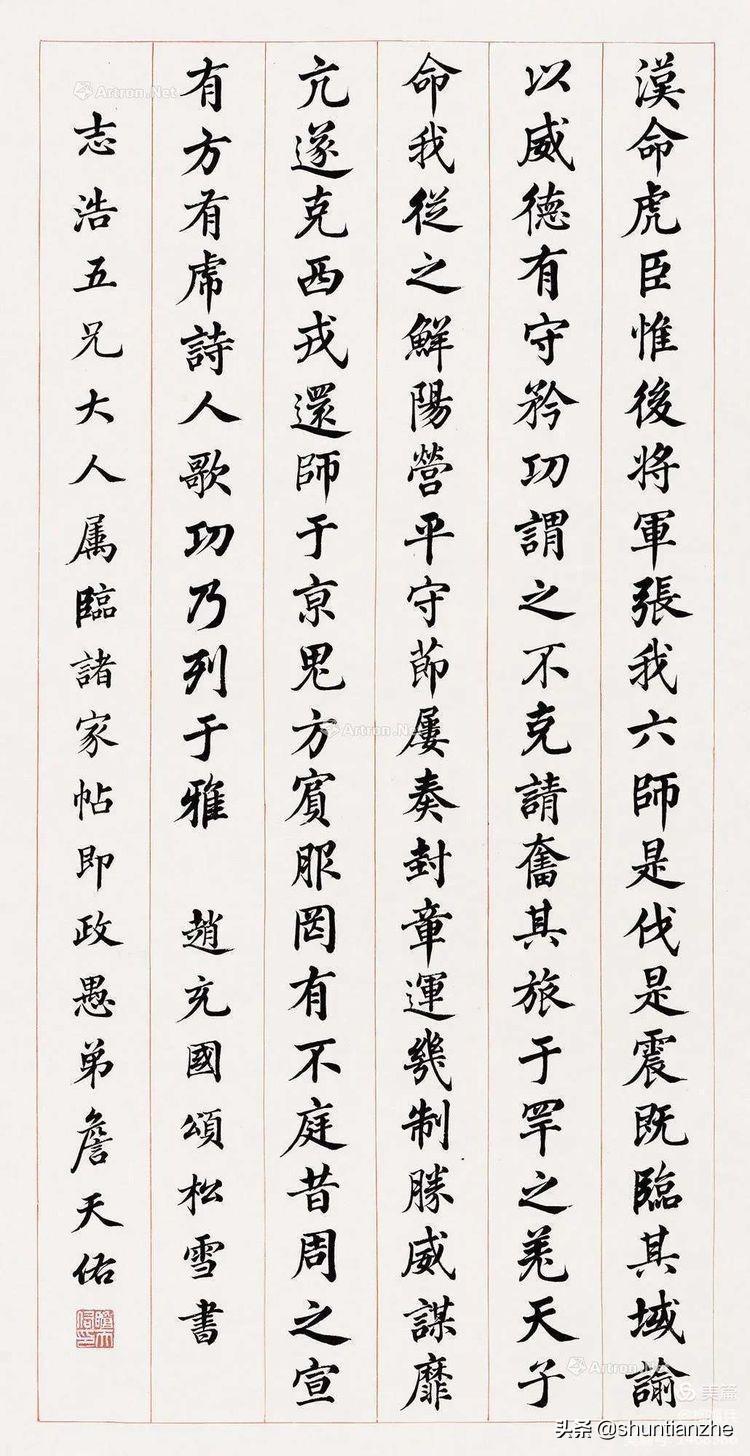 漢命虎臣惟後將軍張我六師是伐是震既臨其域諭
以威德有守矜功謂之不克請奮其旅于罕之羌天子
命我從之鮮陽營平守節屢奏封章運幾制勝威謀靡
亢遂克西戎還師于京鬼方賓服罔有不庭昔周之宣
有方有虎詩人歌功乃列于雅 趙充國頌松雪書
志浩五兄大人属臨諸家帖即政愚弟詹天佑
Artron.Net
Artron.Net
Artron.Net
美篇
头条 @shuntianzhe